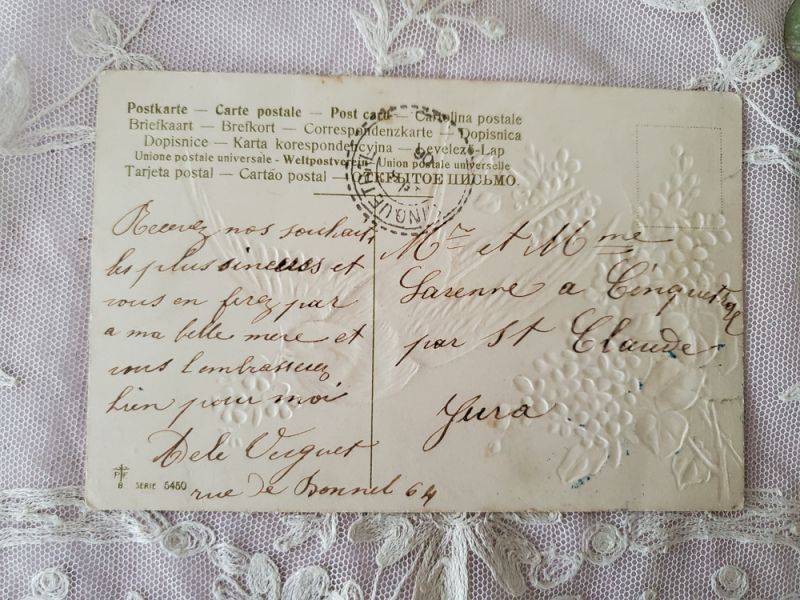 Postkarte — Carte postale — Post card — Cartolina postale
Briefkaart — Brefkort — Correspondenzkarte — Dopisnica
Dopisnice — Karta korespondencyjna — Levelezö-Lap
Unione postale universale - Weltpostverein - Union postale universelle
Tarjeta postal — Cartāo postal — ОТКРЫТОЕ ПИСЬМО.
CINQUETRAL
06
Recevez nos souhaits
les plus sinceres et
vous en ferez par
a ma belle mere et
vous l embrasserez
bien pour moi
Dele Verguet
rue de Bonnel 64
Mr et Mme
Lavenne a Cinquetral
par St Claude
Jura
PF
B SERIE 5450